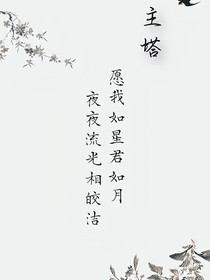 主塔
愿我如星君如月
夜夜流光相皎洁